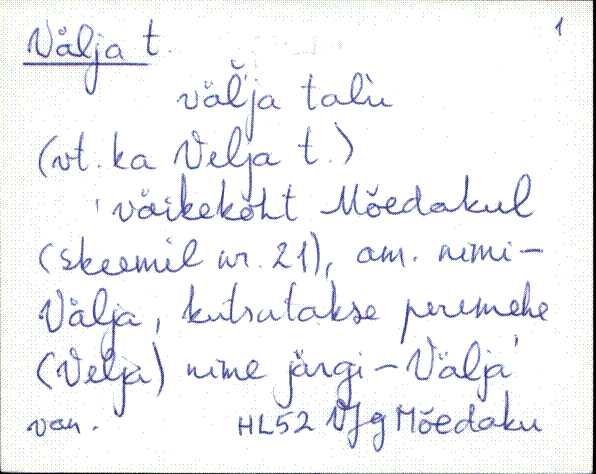 Välja t. 1
väl̆ja talu
(vt. ka Velja t.)
väikekoht Mõedakul
(skeemil nr. 21), am. nimi-
Välja, kutsutakse peremehe
(Velja) nime järgi - Välja
van. HL52 VJg Mõedaku